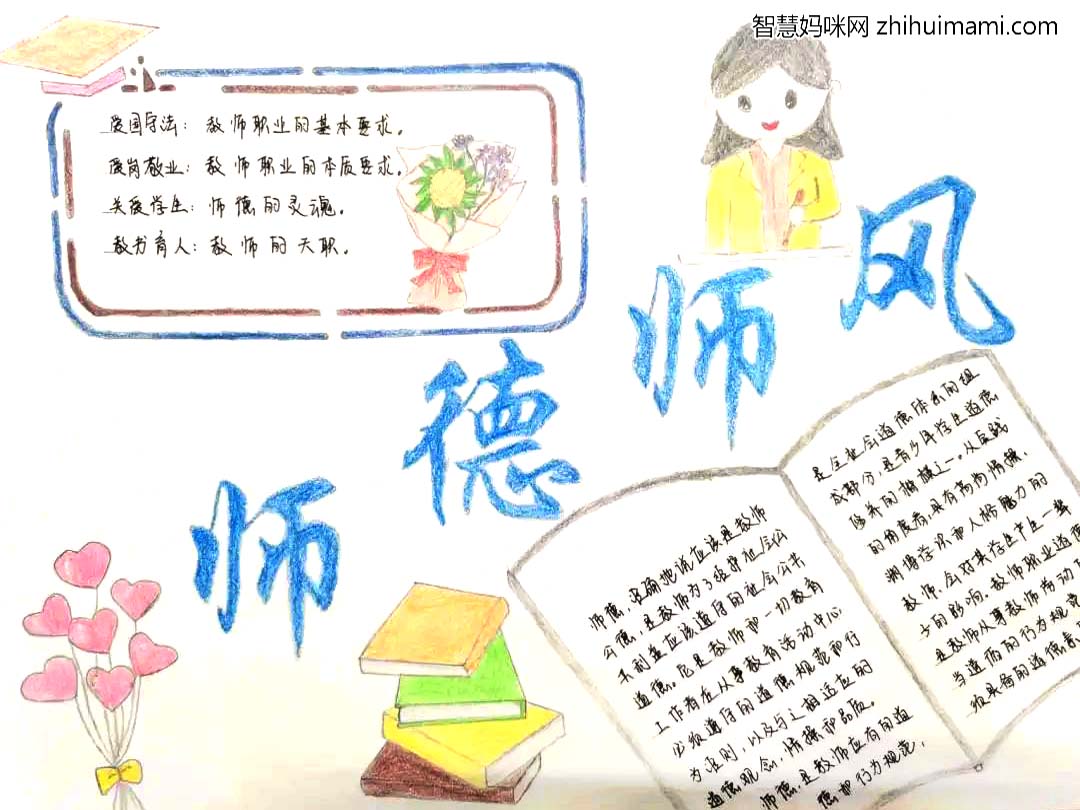 智慧妈咪网 zhihuimami.com
爱国守法：教师职业的基本要求。
爱岗敬业：教师职业的本质要求。
关爱学生：师德的灵魂。
教书育人：教师的天职。
师德师风
师德，准确地说应该是教师
公德，是教师为了维护社会公
共利益应该遵守的社会公共
道德。它是教师和一切教育
工作者在从事教育活动中心
必须遵守的道德规范和行
为准则，以及与之相适应的
道德观念，情操和品质。
师德，是教师应有的道
德和行为规范，
是全社会道德体系的组
成部分，是青少年学生道德
修养的楷模之一。从实践
的角度看，具有高尚情操，
渊博学识和人格魅力的
教师，会对其学生产生一辈
子的影响。教师职业道德
是教师从事教师劳动
当遵循的行为规